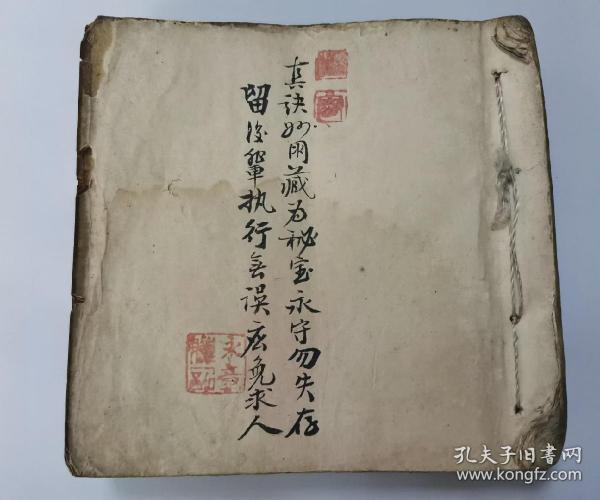 真诀妙用藏为秘宝永守勿失存
留後輩执行无误庶免求人
孔夫子旧书网
www.kongfz.com